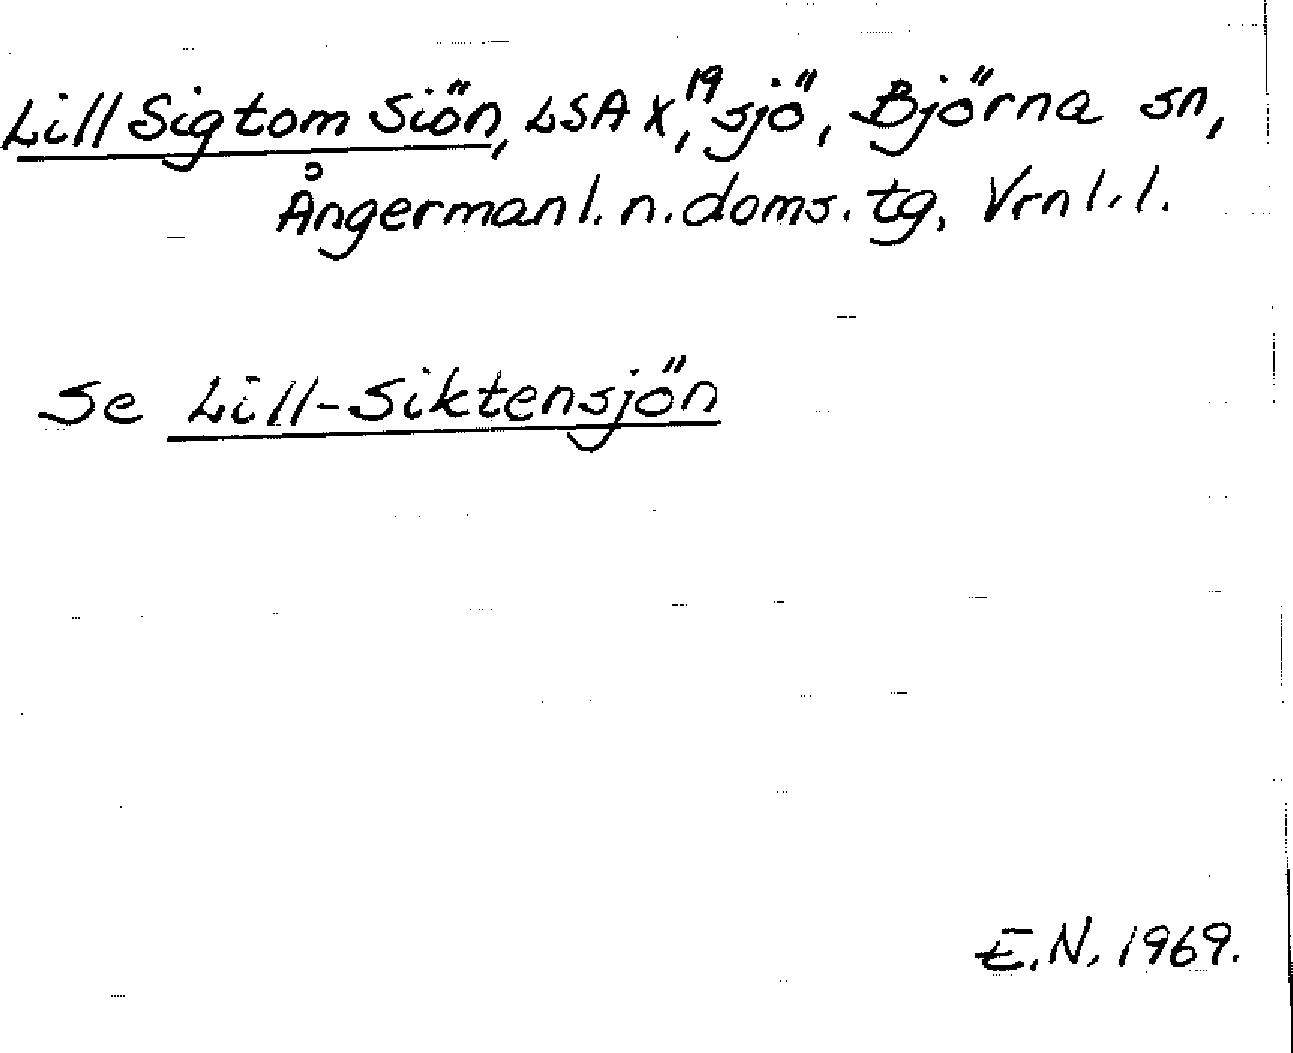 Lill Sigtom Siön, LSA X,19 sjö, Björna sn,
Ångermanl. n. doms. tg, Vrnl. l.
Se Lill-Siktensjön
E.N. 1969.